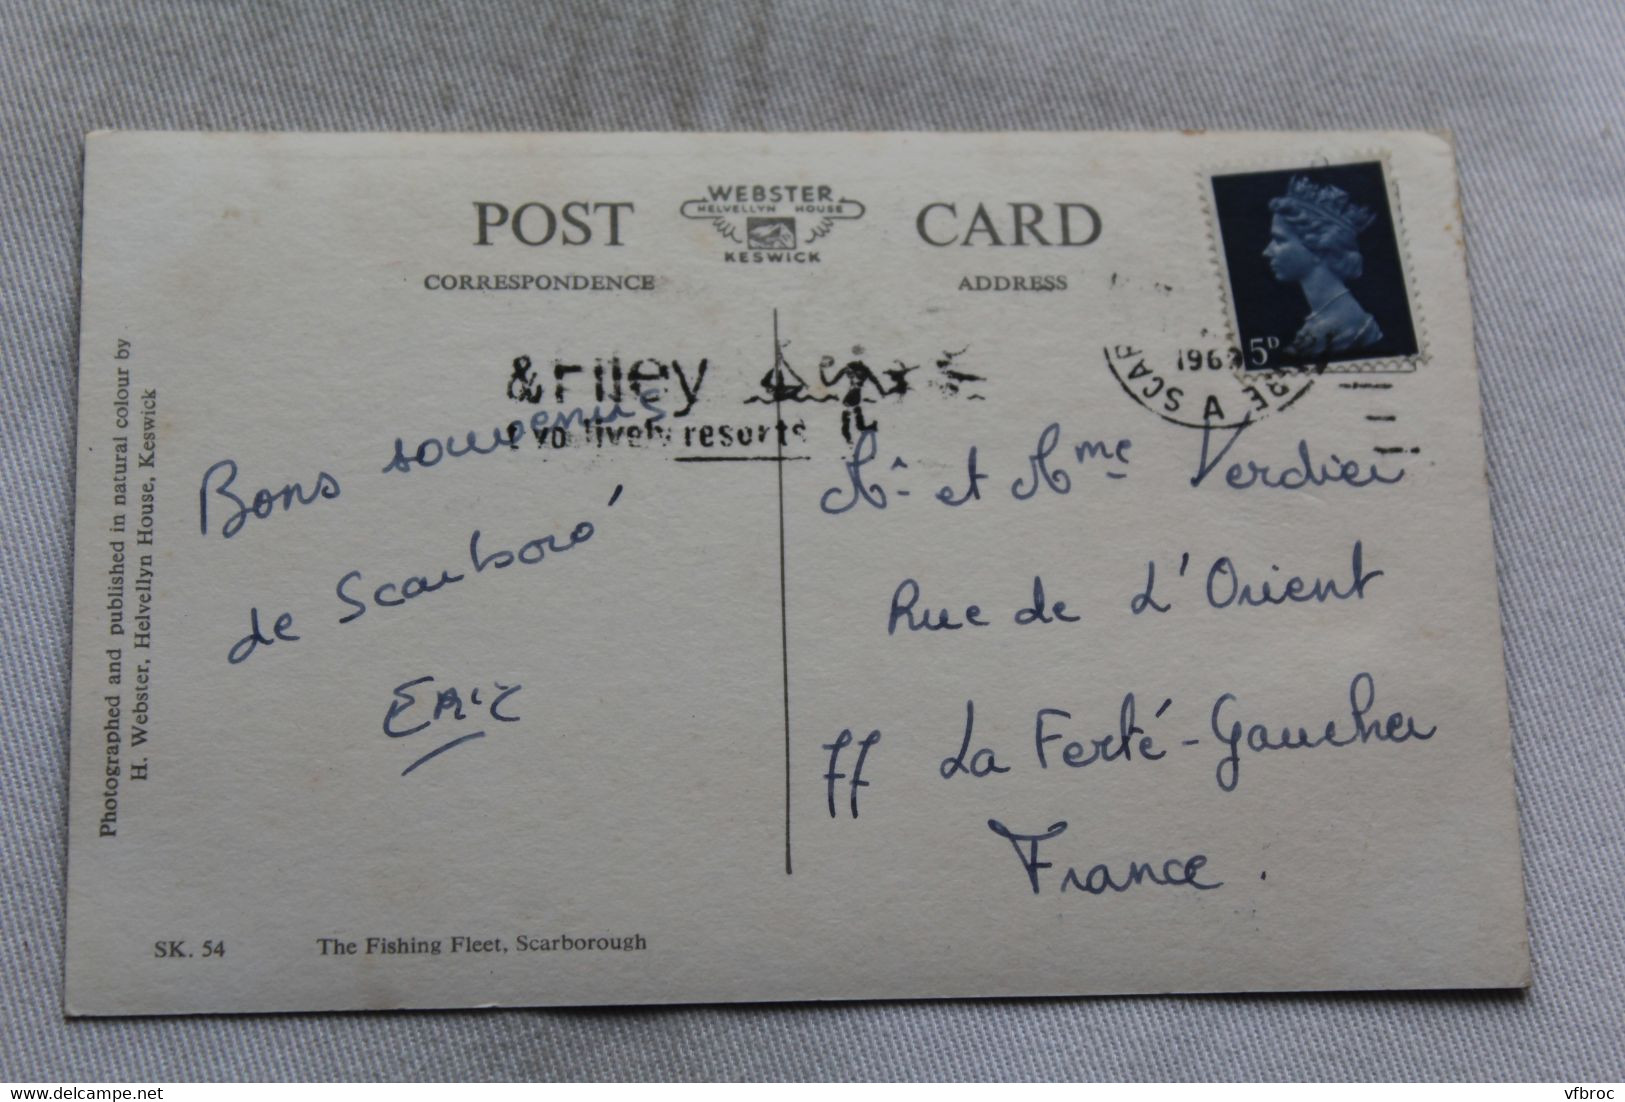 POST CARD
WEBSTER
HELVELLYN HOUSE
KESWICK
CORRESPONDENCE
ADDRESS
& Filey
lively resorts
196
A
5D
Photographed and published in natural colour by
H. Webster, Helvellyn House, Keswick
Bons souvenirs
de Scarboro'
ERIC
Mr et Mme Verdier
Rue de L'Orient
La Ferté-Gaucher
France.
SK. 54
The Fishing Fleet, Scarborough
vfbroc